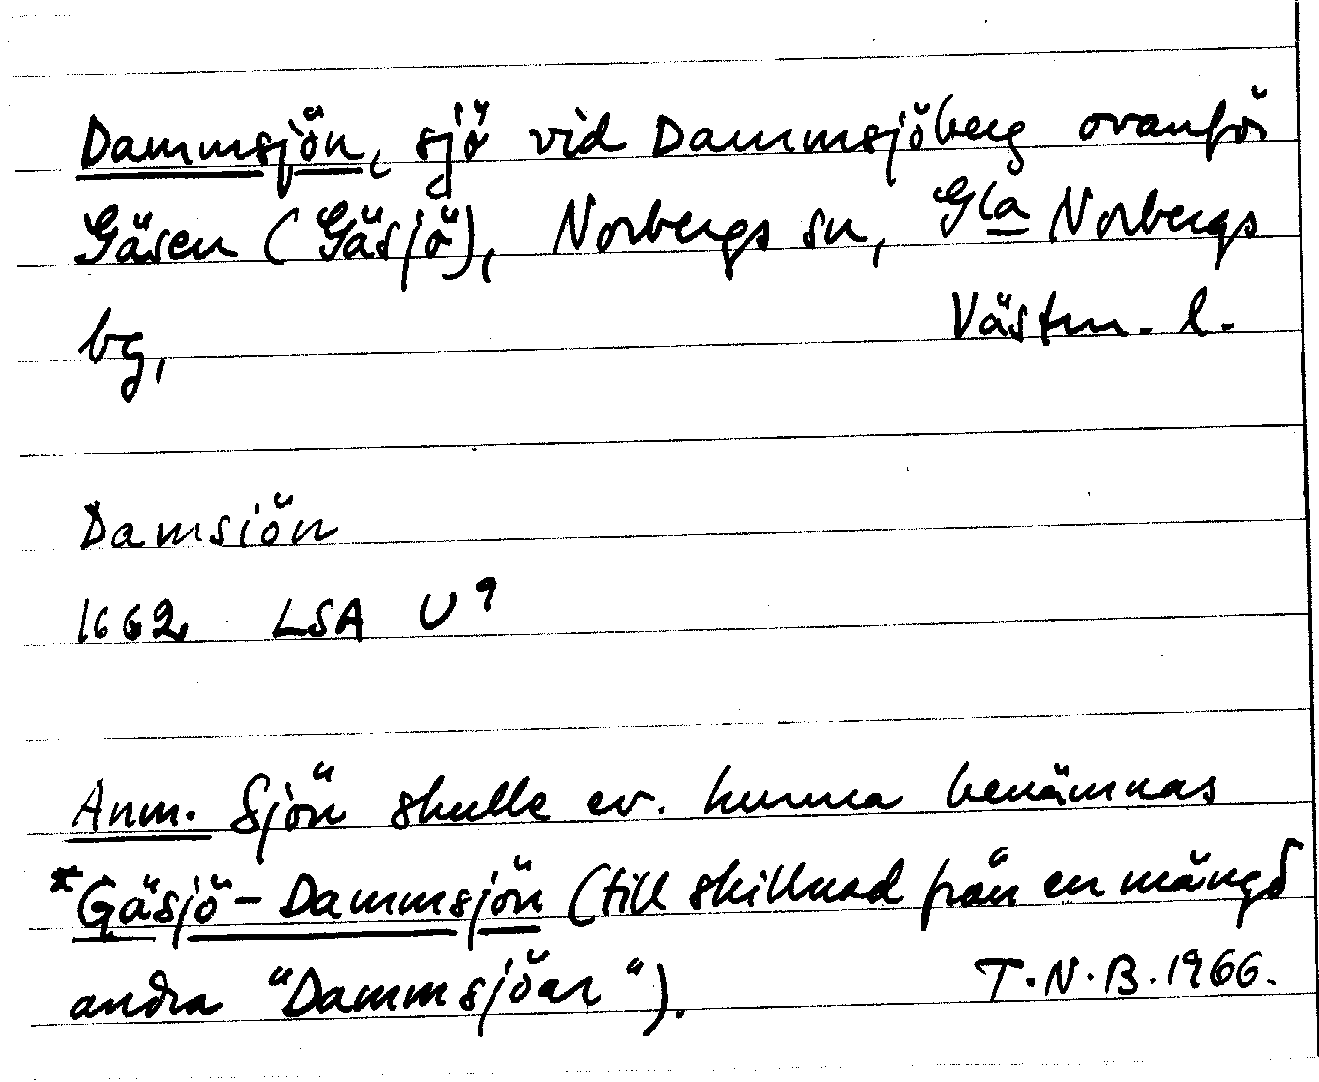 Dammsjön, sjö vid Dammsjöberg ovanför
Gäsen (Gäsjö), Norbergs sn, Gla Norbergs
bg, Västm. l.
Damsiön
1662 LSA U9
Anm. Sjön skulle ev. kunna benämnas
*Gäsjö-Dammsjön (till skillnad från en mängd
andra "Dammsjöar").
T.N.B. 1966.